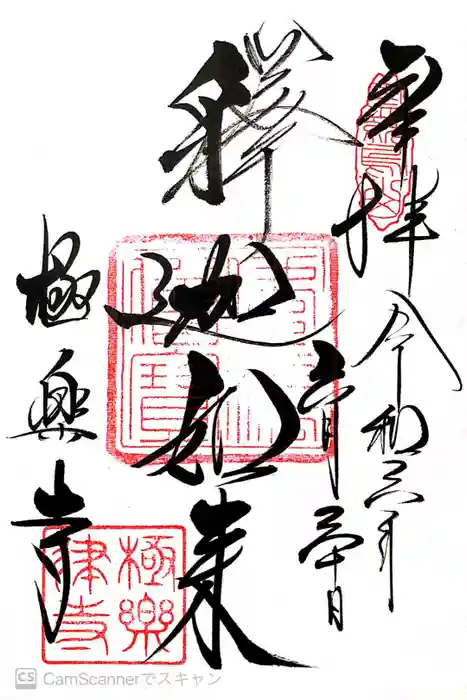 奉拝
令和六年
六月三十日
釋迦如来
極楽寺
極樂
律寺
CamScannerでスキャン